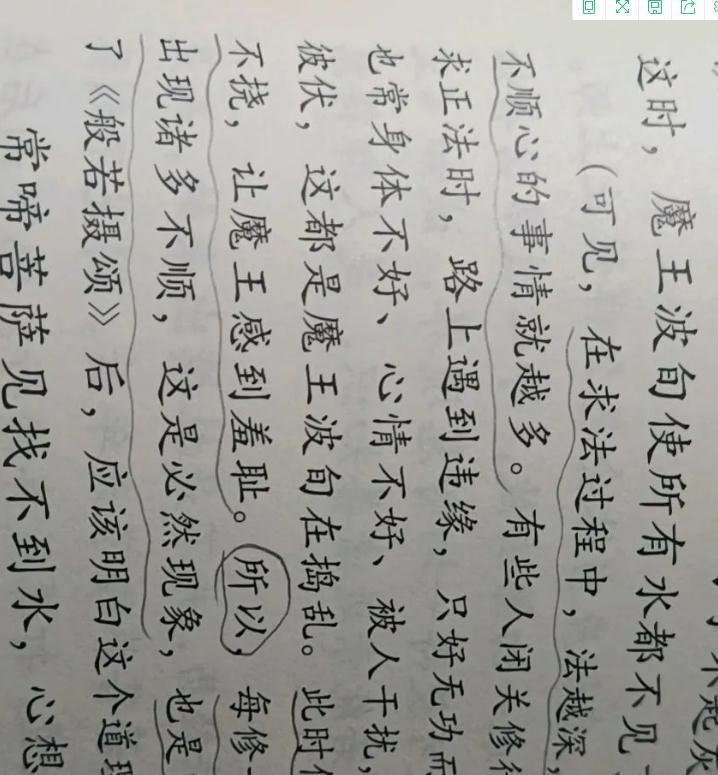 这时，魔王波旬使所有水都不见
（可见，在求法过程中，法越深，
不顺心的事情就越多。有些人闭关修行
求正法时，路上遇到违缘，只好无功而
也常身体不好、心情不好、被人干扰，
彼伏，这都是魔王波旬在捣乱。此时
不挠，让魔王感到羞耻。所以，每修一
出现诸多不顺，这是必然现象，也是
了《般若摄颂》后，应该明白这个道理
常啼菩萨见找不到水，心想